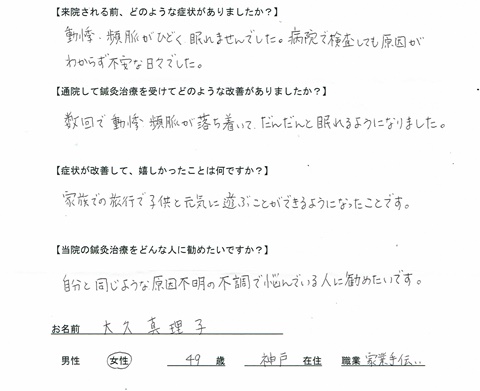 【来院される前、どのような症状がありましたか？】
動悸・頻脈がひどく眠れませんでした。病院で検査しても原因が
わからず不安な日々でした。
【通院して鍼灸治療を受けてどのような改善がありましたか？】
数回で動悸・頻脈が落ち着いて、だんだんと眠れるようになりました。
【症状が改善して、嬉しかったことは何ですか？】
家族での旅行で子供と元気に遊ぶことができるようになったことです。
【当院の鍼灸治療をどんな人に勧めたいですか？】
自分と同じような原因不明の不調で悩んでいる人に勧めたいです。
お名前 大久真理子
男性 女性 49 歳 神戸 在住 職業 家業手伝い